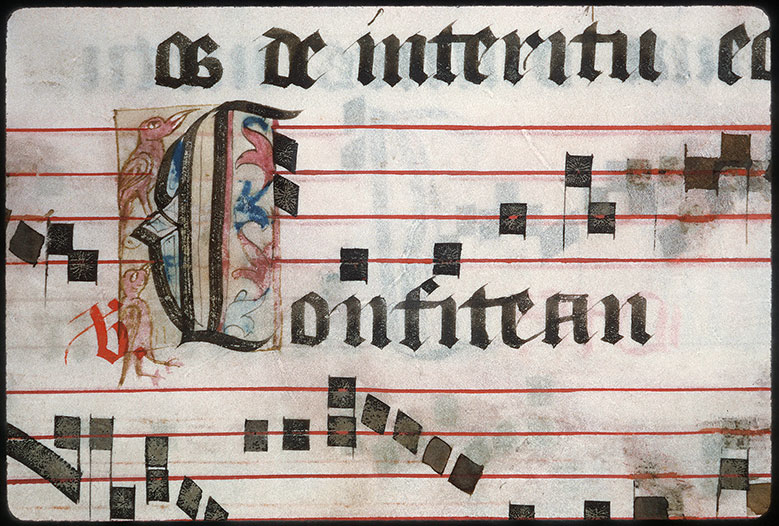 os de interitu eo
V Confitean